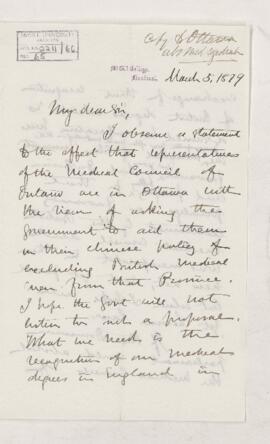 Copy to Ottawa
McGill College,
Montreal.
March 5, 1879
My dear Sir,
I observe a statement
to the effect that representatives
of the Medical Council of
Ontario are in Ottawa with
the view of asking the
Government to aid them
in their Chinese policy of
excluding British medical
men from that Province.
I hope the Govt will not
listen to such a proposal.
What we need is the
recognition of our medical
degrees in England in